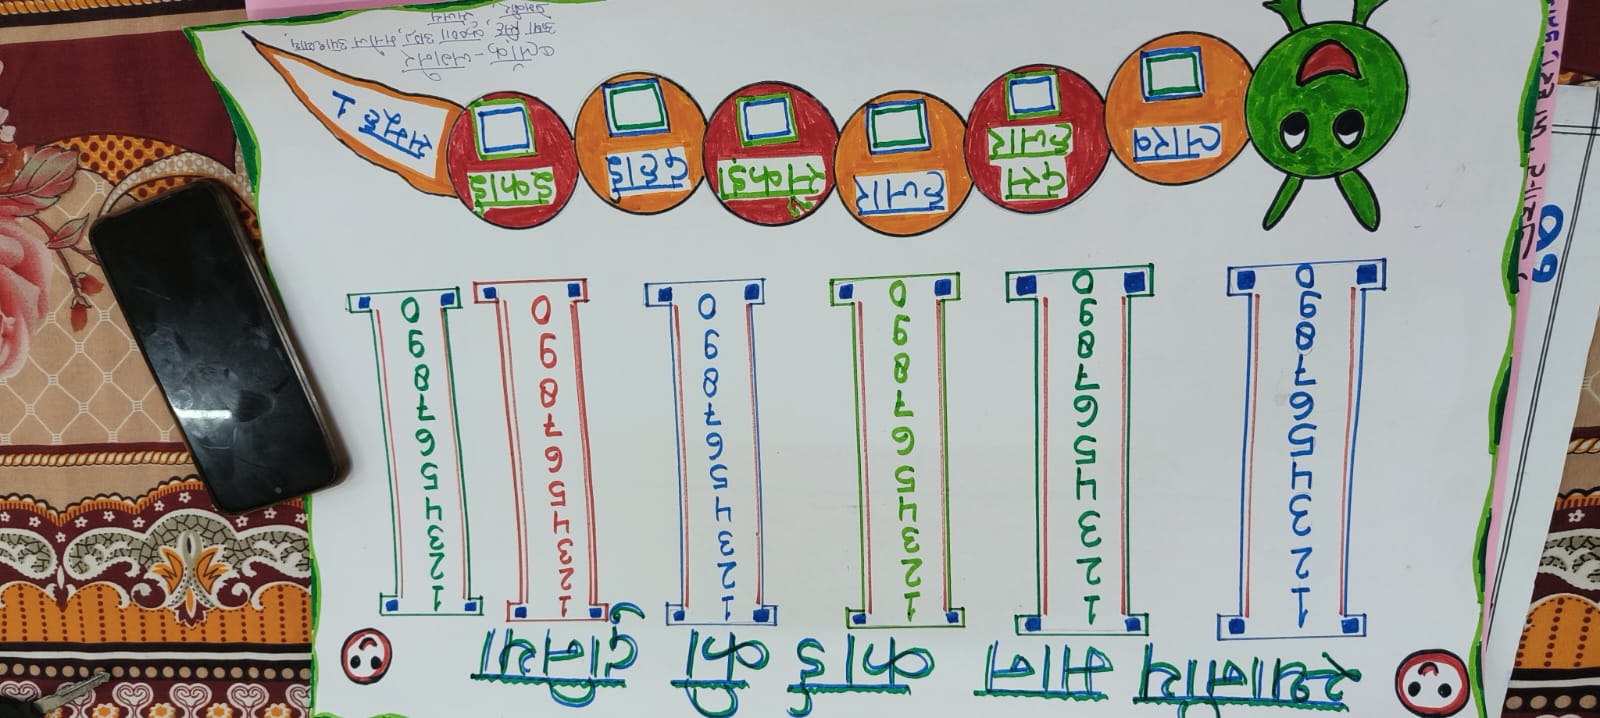 स्थानीय मान कार्ड की दुनिया
1 1 1 1 1 1
2 2 2 2 2 2
3 3 3 3 3 3
4 4 4 4 4 4
5 5 5 5 5 5
6 6 6 6 6 6
7 7 7 7 7 7
8 8 8 8 8 8
9 9 9 9 9 9
0 0 0 0 0 0
लाख
दस
हजार
हजार
सैकड़ा
दहाई
इकाई
समूह 1
ब्लॉक - जगनेर